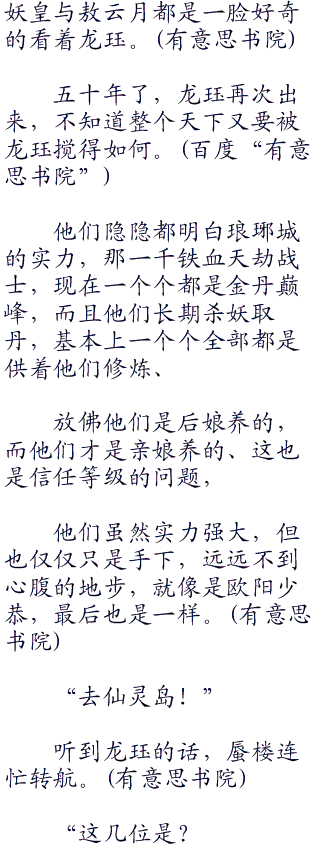 妖皇与敖云月都是一脸好奇
的看着龙珏。(有意思书院)
五十年了，龙珏再次出
来，不知道整个天下又要被
龙珏搅得如何。(百度“有意
思书院”)
他们隐隐都明白琅琊城
的实力，那一千铁血天劫战
士，现在一个个都是金丹巅
峰，而且他们长期杀妖取
丹，基本上一个个全部都是
供着他们修炼、
放佛他们是后娘养的，
而他们才是亲娘养的、这也
是信任等级的问题，
他们虽然实力强大，但
也仅仅只是手下，远远不到
心腹的地步，就像是欧阳少
恭，最后也是一样。(有意思
书院)
“去仙灵岛！”
听到龙珏的话，蜃楼连
忙转航。(有意思书院)
“这几位是？